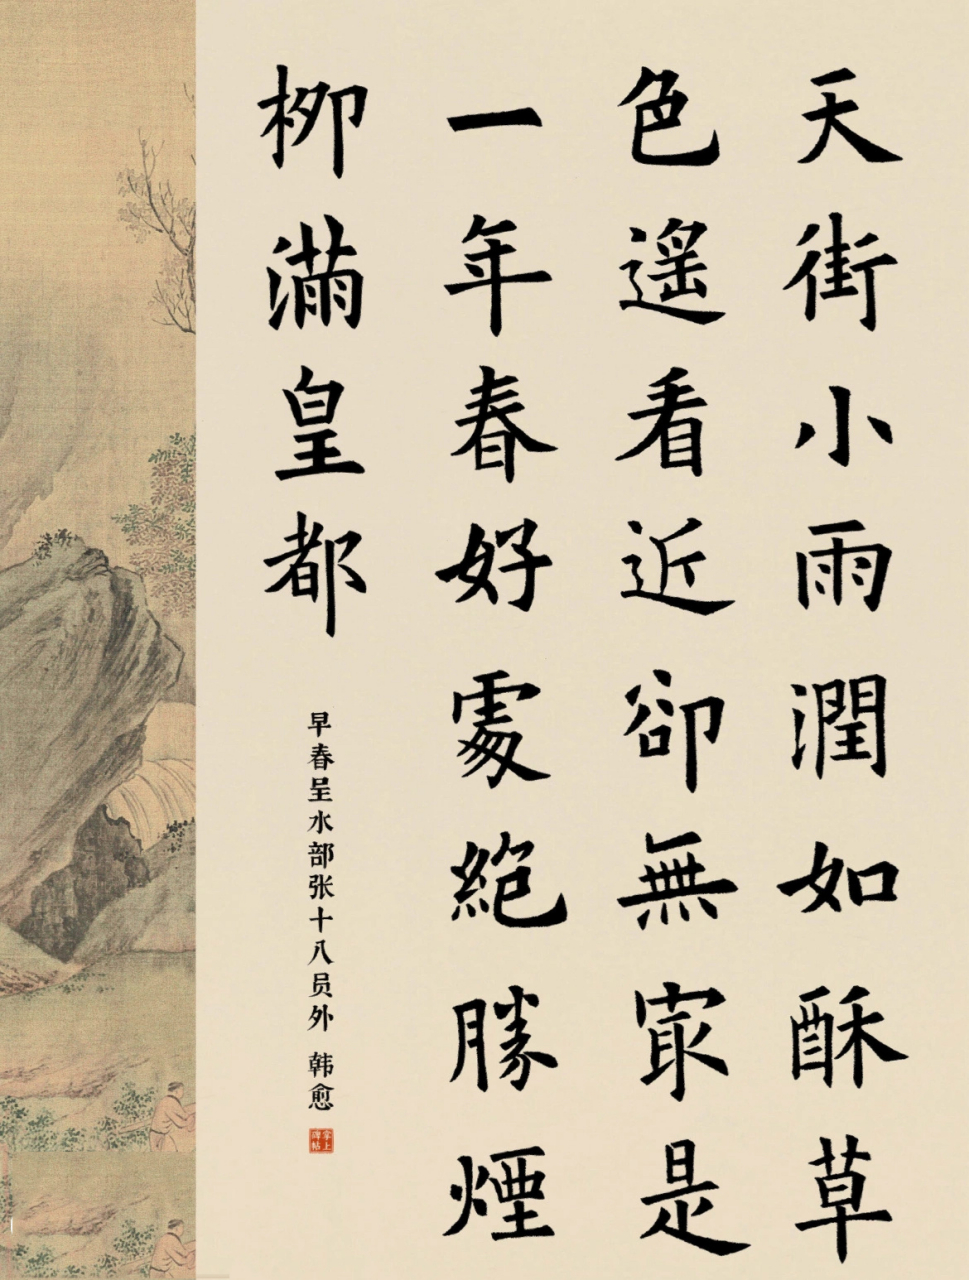 天街小雨潤如酥草
色遥看近卻無㝡是
一年春好處絕勝煙
柳滿皇都
早春呈水部张十八员外 韩愈
掌上碑帖